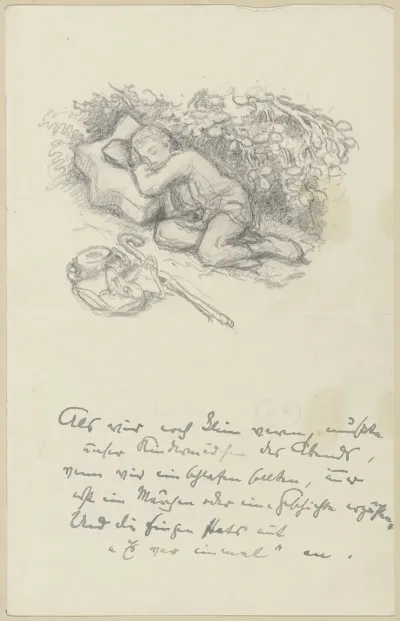 Als wir noch klein waren, mußte
unser Kindermädchen des Abends,
wenn wir einschlafen sollten, immer
erst ein Märchen oder eine Geschichte erzählen.
Und die fingen stets mit
„Es war einmal“ an.